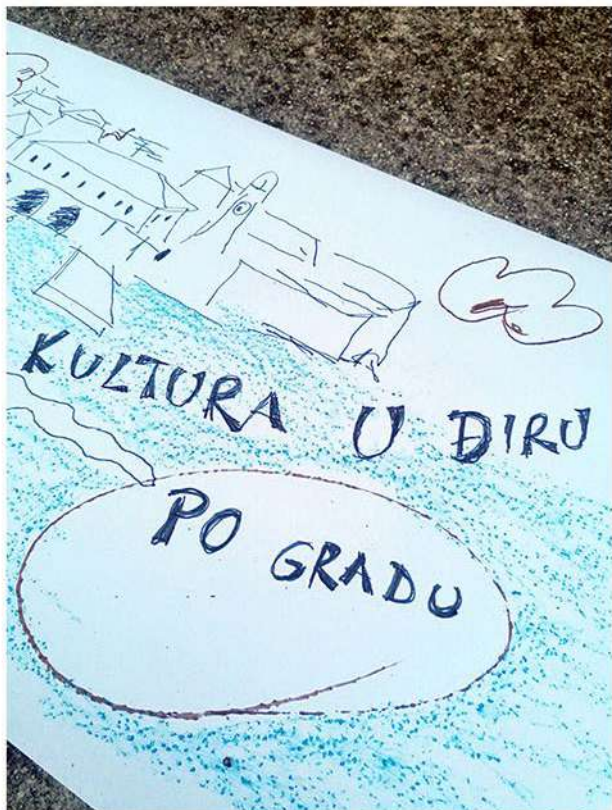 KULTURA U ĐIRU
PO GRADU